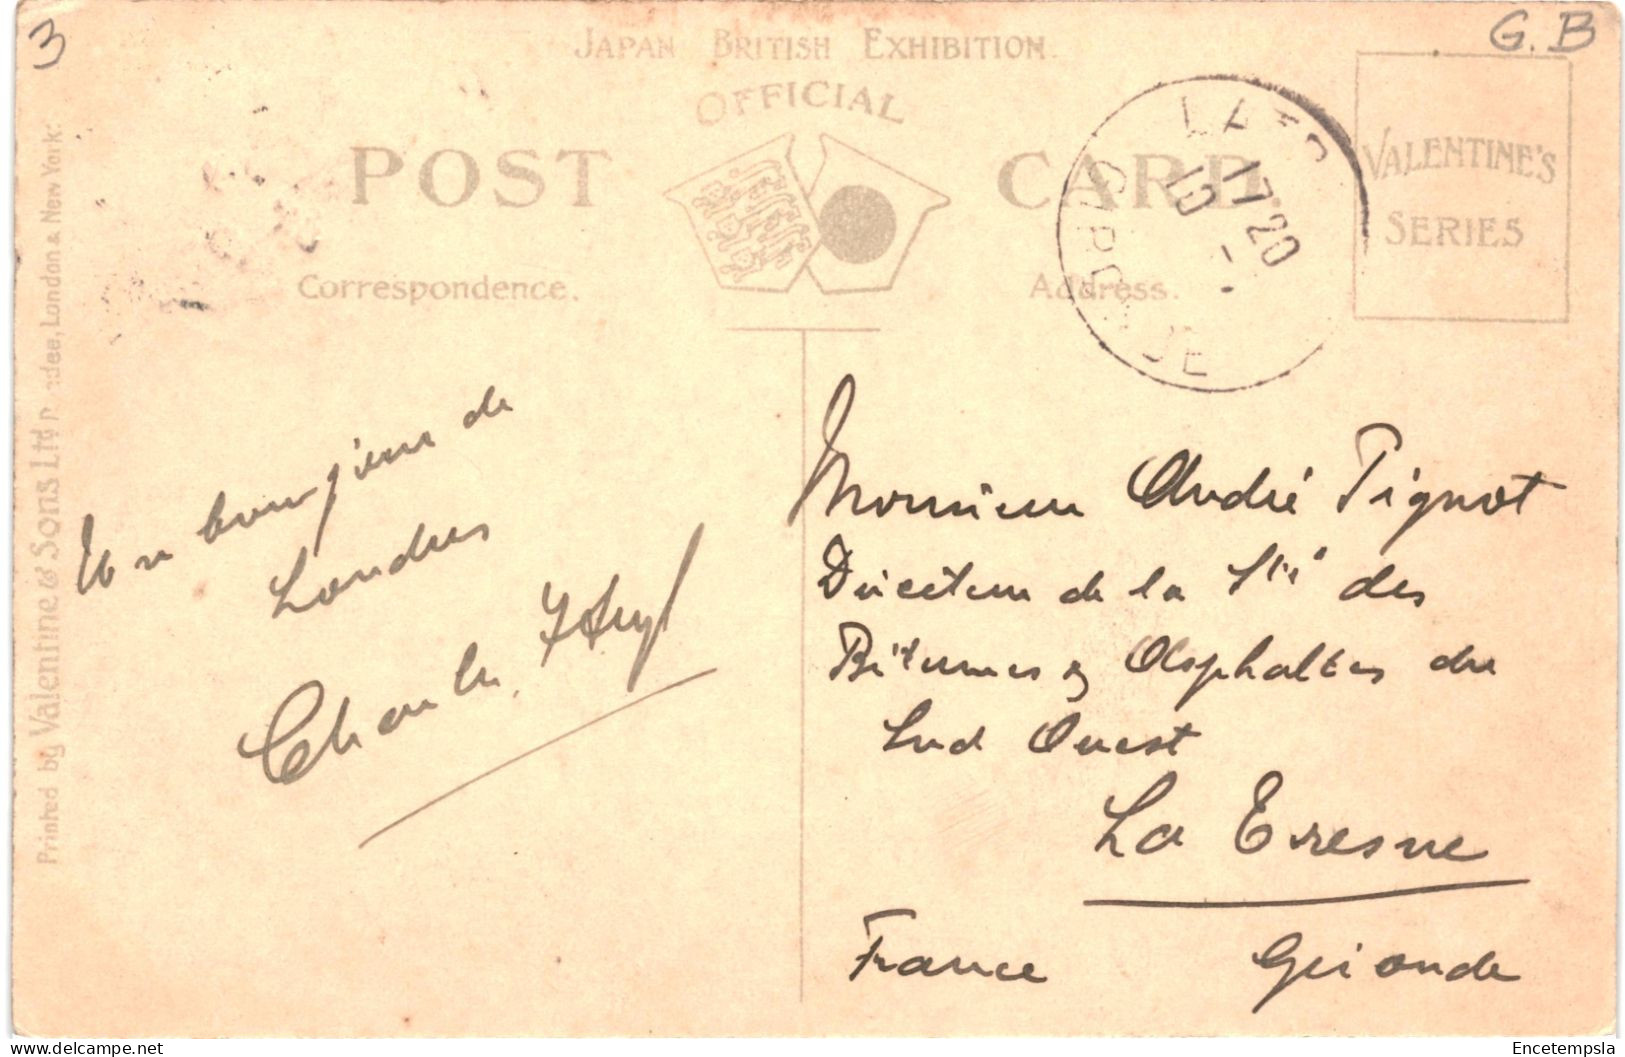 3
G.B
JAPAN BRITISH EXHIBITION.
OFFICIAL
POST CARD.
Correspondence.
Address.
VALENTINE'S
SERIES
17 20
10
GIRONDE
Printed by Valentine & Sons Ltd London & New York:
Un bonjour de
Londres
Charles
Monsieur André Pignot
Directeur de la Sté des
Bitumes & Asphaltes du
Sud Ouest
La Tresne
France Gironde
Encetempsla